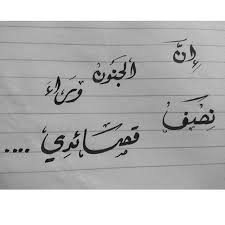 إِنَّ الجُنُونَ وَرَاءَ
نِصْفِ قَصَائِدِي ....